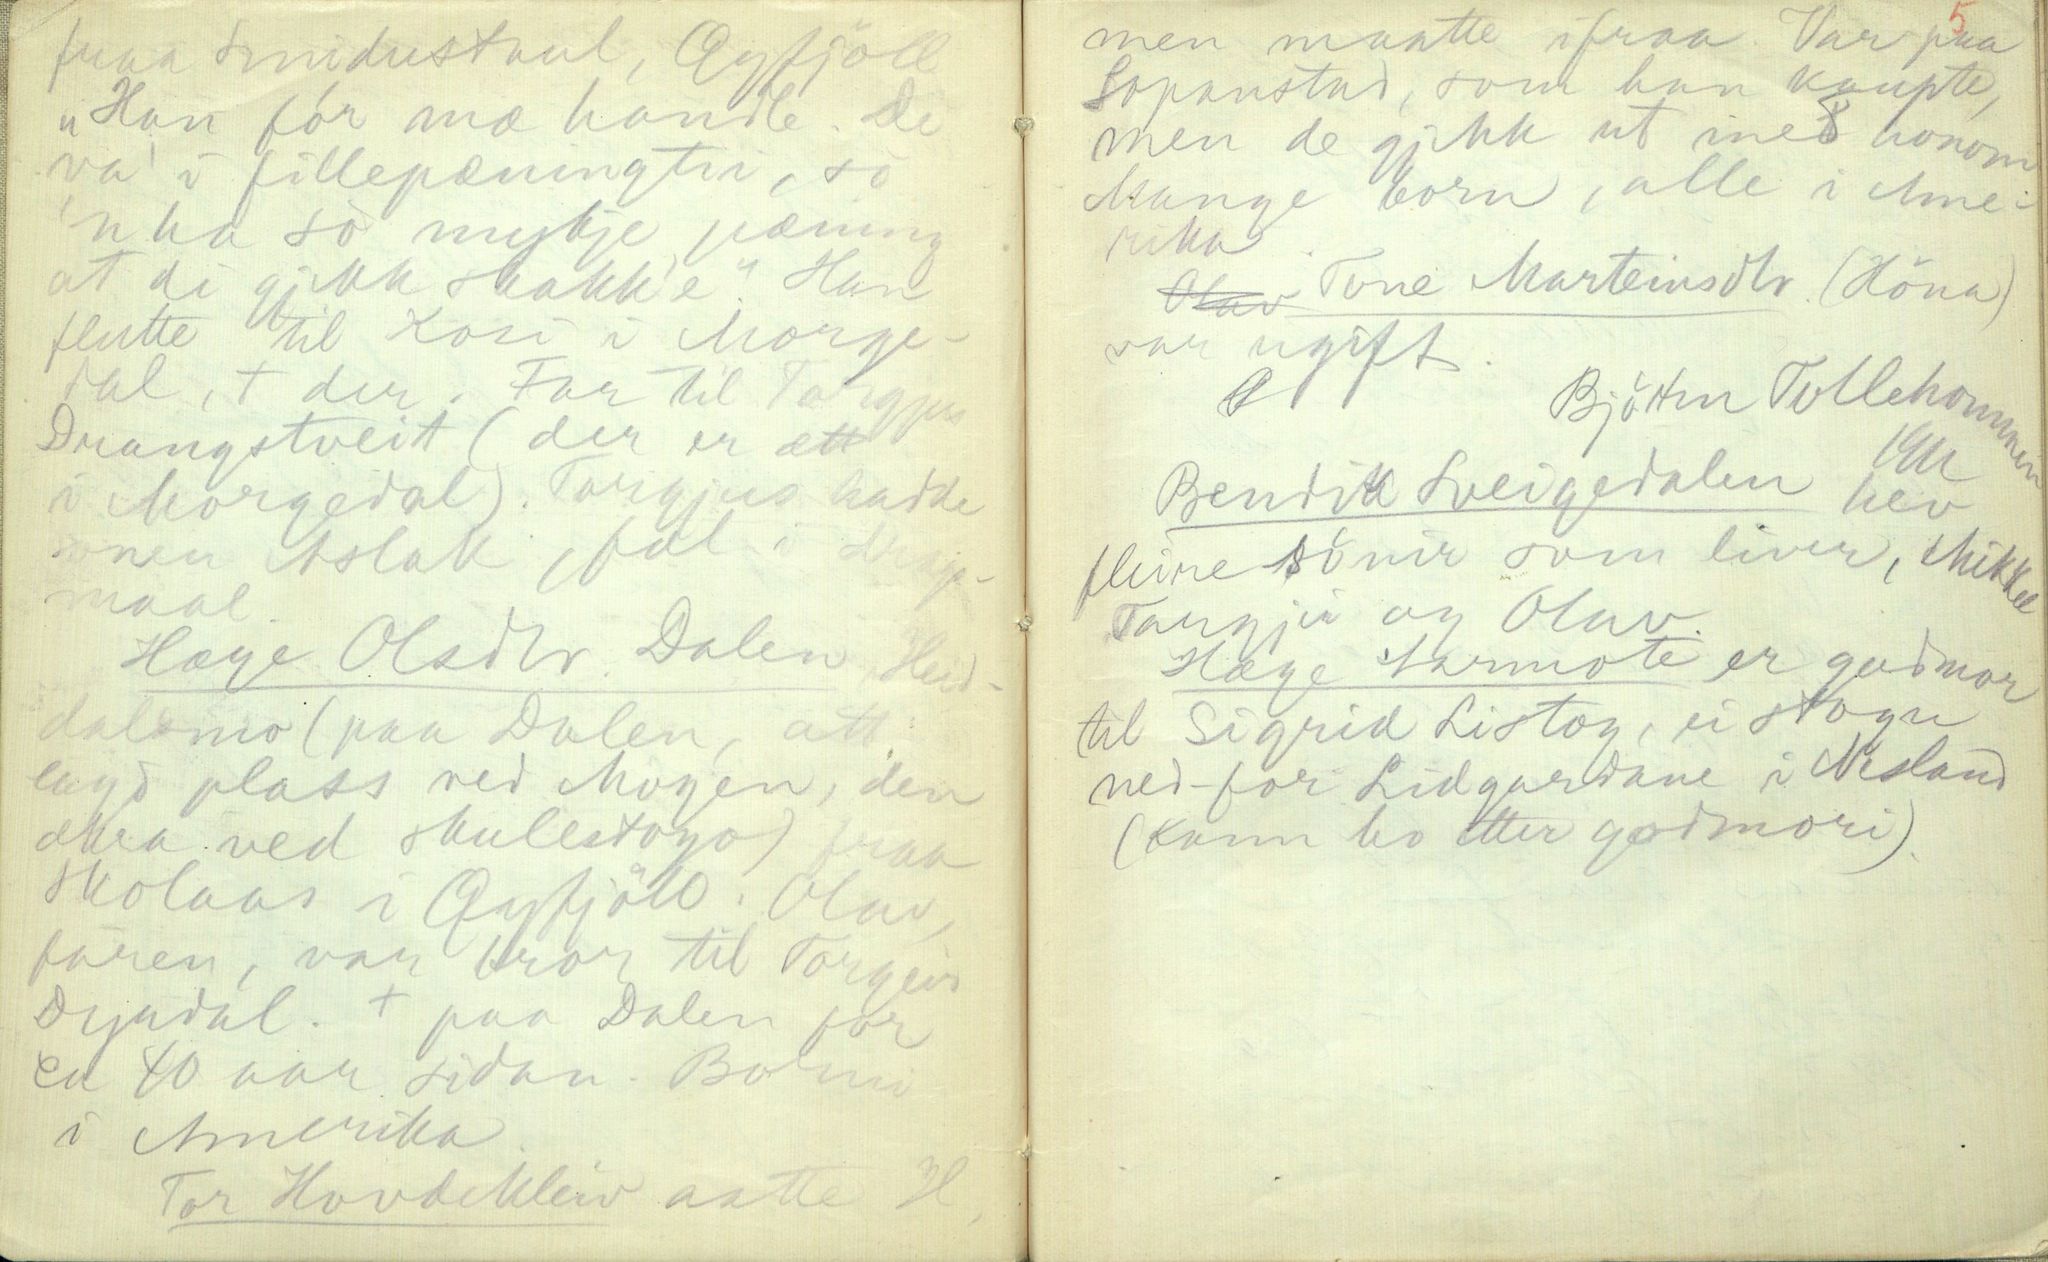 fraa Smidustaul, Øyfjöll
"Han fór mæ handle. De
va' i fillepæningtii, so
'n ha so mykje pæning
at di gjikk skakk'e". Han
flutte til Kosi i Morge-
dal, + der. Far til Targjus
Drangstveit (der er ætt
i Morgedal). Targjus hadde
sonen Aslak, fal i
maal.
Hæge Olsdtr. Dalen, Heid-
dalsmo (paa Dalen, att-
lagd plass ved Mogen, den
økra ved skulestogo) fraa
Skolaas i Øyfjöll. Olav,
faren, var bror til Torgeir
Dyrdal. + paa Dalen for
ca 40 aar sidan. Borni
i Amerika.
Tor Hovdekleiv aatte H,
5
men maatte ifraa. Var paa
Lopanstad, som han kaupte,
men de gjikk ut med honom
Mange born, alle i Ame-
rika.
Olav Tone Marteinsdtr. (Höna)
var ugift.
Björtm Tollehommen
1911
Bendik Sveigedalen hev
fleire sönir som liver, Mikkel
Targjei og Olav.
Hæge Aarmote er godmor
til Sigrid Listog, ei stogu
ned-for Lidgardane i Nesland
(Kann ho etter godmori).